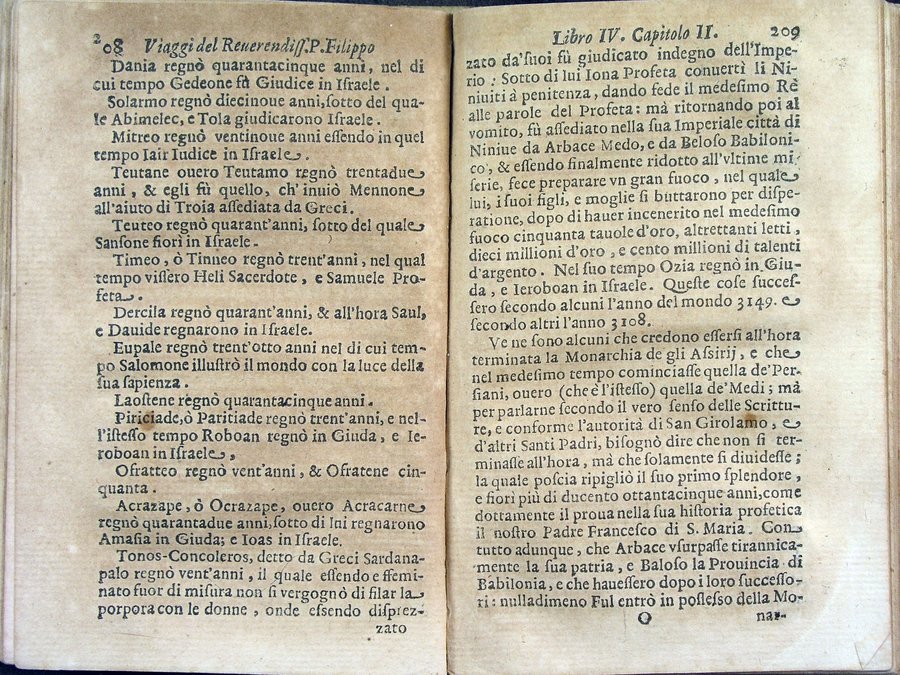 208 Viaggi del Reuerendiſſ. P. Filippo
Dania regnò quarantacinque anni, nel di
cui tempo Gedeone fù Giudice in Iſraele.
Solarmo regnò diecinoue anni, ſotto del qua-
le Abimelec, e Tola giudicarono Iſraele.
Mitreo regnò ventinoue anni eſſendo in quel
tempo Iair Iudice in Iſraele.
Teutane ouero Teutamo regnò trentadue
anni, & egli fù quello, ch'inuiò Mennone
all'aiuto di Troia aſſediata da Greci.
Teuteo regnò quarant'anni, ſotto del quale
Sanſone fiorì in Iſraele.
Timeo, ò Tinneo regnò trent'anni, nel qual
tempo viſſero Heli Sacerdote, e Samuele Pro-
feta.
Dercila regnò quarant'anni, & all'hora Saul,
e Dauide regnarono in Iſraele.
Eupale regnò trent'otto anni nel di cui tem-
po Salomone illuſtrò il mondo con la luce della
ſua ſapienza.
Laoſtene regnò quarantacinque anni.
Piriciade, ò Paritiade regnò trent'anni, e nel-
l'iſteſſo tempo Roboan regnò in Giuda, e Ie-
roboan in Iſraele,
Ofratteo regnò vent'anni, & Ofratene cin-
quanta.
Acrazape, ò Ocrazape, ouero Acracarne
regnò quarantadue anni, ſotto di lui regnarono
Amaſia in Giuda; e Ioas in Iſraele.
Tonos-Concoleros, detto da Greci Sardana-
palo regnò vent'anni, il quale eſſendo effemi-
nato fuor di miſura non ſi vergognò di filar la
porpora con le donne, onde eſſendo diſprez-
zato
Libro IV. Capitolo II. 209
zato da'ſuoi fù giudicato indegno dell'Impe-
rio: Sotto di lui Iona Profeta conuertì li Ni-
niuiti à penitenza, dando fede il medeſimo Rè
alle parole del Profeta: mà ritornando poi al
vomito, fù aſſediato nella ſua Imperiale città di
Niniue da Arbace Medo, e da Beloſo Babiloni-
co, & eſſendo finalmente ridotto all'vltime mi-
ſerie, fece preparare vn gran fuoco, nel quale
lui, i ſuoi figli, e moglie ſi buttarono per diſpe-
ratione, dopo di hauer incenerito nel medeſimo
fuoco cinquanta tauole d'oro, altrettanti letti,
dieci millioni d'oro, e cento millioni di talenti
d'argento. Nel ſuo tempo Ozia regnò in Giu-
da, e Ieroboan in Iſraele. Queſte coſe succeſ-
ſero ſecondo alcuni l'anno del mondo 3149. e
ſecondo altri l'anno 3108.
Ve ne ſono alcuni che credono eſſerſi all'hora
terminata la Monarchia de gli Aſſirij, e che
nel medeſimo tempo cominciaſſe quella de'Per-
ſiani, ouero (che è l'iſteſſo) quella de'Medi; mà
per parlarne ſecondo il vero ſenſo delle Scrittu-
re, e conforme l'autorità di San Girolamo, e
d'altri Santi Padri, biſognò dire che non ſi ter-
minaſſe all'hora, mà che ſolamente ſi diuideſſe;
la quale poſcia ripigliò il ſuo primo ſplendore,
e fiorì più di ducento ottantacinque anni, come
dottamente il proua nella ſua hiſtoria profetica
il noſtro Padre Franceſco di S. Maria. Con
tutto adunque, che Arbace vſurpaſſe tirannica-
mente la ſua patria, e Baloſo la Prouincia di
Babilonia, e che haueſſero dopo i loro ſucceſſo-
ri: nulladimeno Ful entrò in poſſeſſo della Mo-
O nar-